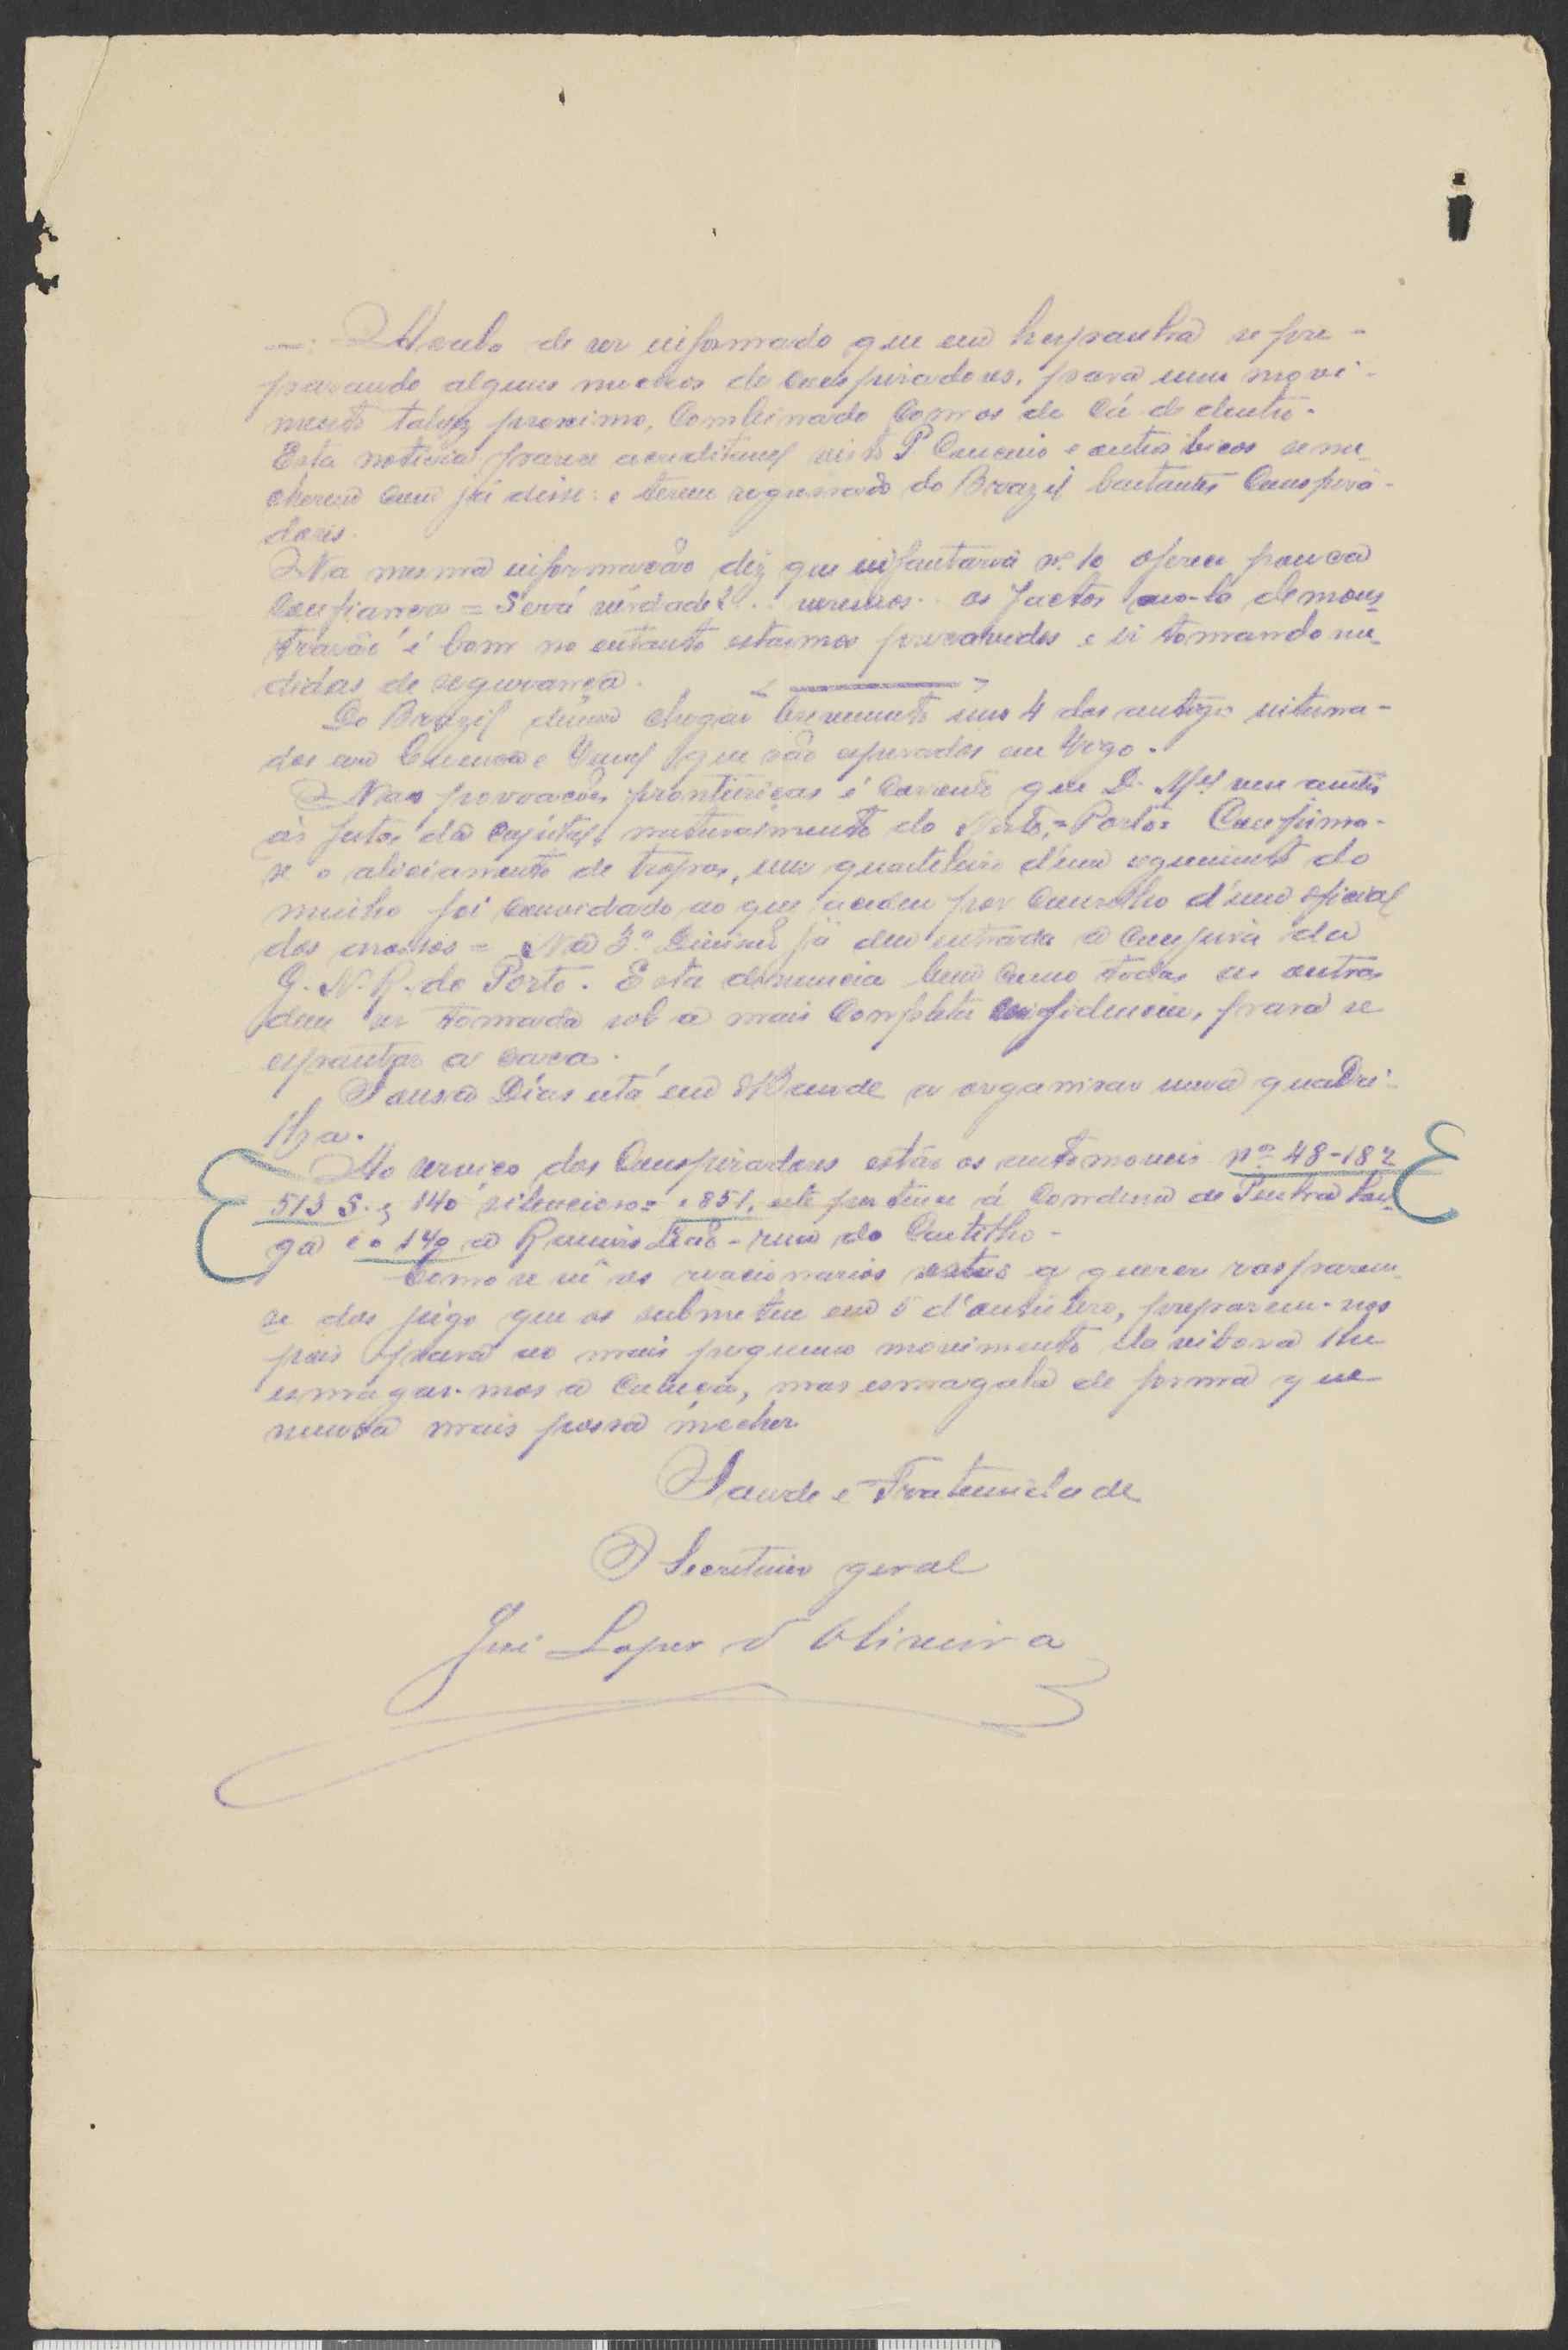 —: Acabo de ser informado que em hespanha se pre-
parando alguns nucleos de conspiradores, para um movi-
mento talvez proximo, combinado com os de cá de dentro.
Esta noticia parece acreditavel visto P. Couceiro e outros bicos se me-
cherem como já disse: e terem regressado do Brazil bastantes conspira-
dores.
Na mesma informação diz que infantaria nº. 10 oferece pouca
confiança = Será verdade?... veremos.. os factos no-lo demons
trarão é bom no entanto estarmos precavidos e ir tomando me-
didas de segurança.
Do Brazil devem chegar brevemente uns 4 dos antigos interna-
dos em Cuenca e Teruel que são esperados em Vigo.
Nas povoações fronteiriças é corrente que D. Mel vem assistir
ás festas da capital, naturalmente do Norte, = Porto = Confirma-
se o aliciamento de tropas, um quarteleiro d'um regimento do
minho foi convidado ao que acedeu por conselho d'um oficial
dos nossos = Na 3ª Divisão já deu entrada a conjura da
G. N. R. do Porto. Esta denuncia bem como todas as outras
deve ser tomada sob a mais completa confidencia, para se
espantar a caca.
Sousa Dias está em a organisar uma quadri-
lha.
Ao serviço dos conspiradores estão os automoveis nº 48-182
513 S. e 140 silencioso = e 851, este pertence á Condessa de Penha Lon
ga e o 140 a Ramiro Leão - rua do Castilho -
Como se vê os reacionarios estão a querer rasparem-
se do jugo que os submeteu em 5 d'outubro, preparem-nos
pois para ao mais pequeno movimento da vibora lhe
esmagar-mos a cabeça, mas esmagala de forma que
nunca mais possa mecher
Saude e Fraternidade
O Secretario geral
José Lopes d'Oliveira